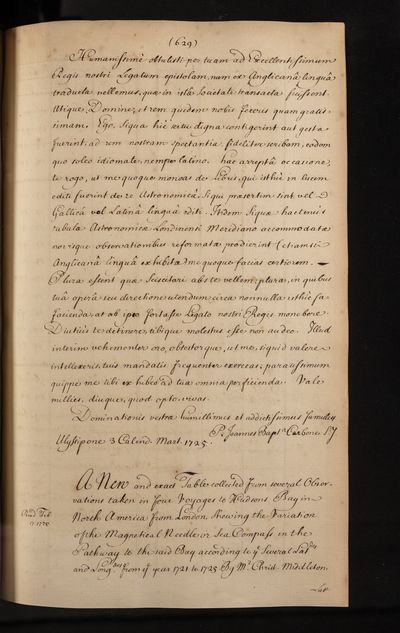 (629)
Humanissimè obtulisti per tuam ad Excellentissimum
Regis nostri Legatum epistolam, num ex Anglicanâ linguâ
traducta vellemus, quæ in istâ Societate transacta fuissent.
Utique, Domine, et rem quidem nobis feceris quam gratis-
simam. Ego, siqua hîc scitu digna contigerint aut gesta
fuerint ad rem nostram spectantia, fideliter scribam, eodem
quo soleo idiomate, nempe latino. hac arreptâ occasione,
te rogo, ut me quoque moneas de libris, qui isthic in lucem
editi fuerint de re Astronomicâ, siqui præsertim sint vel
Gallicâ vel Latinâ linguâ editi. Itidem siquæ hactenus
tabulæ Astronomicæ Londinensi Meridiano accommodatæ
novisque observationibus reformatæ prodierint (etiamsi
Anglicanâ linguâ exhibitæ) me quoque facias certiorem.
Plura essent quæ sciscitari abs te vellem, plura, in quibus
tuâ operâ seu directione utendum circa nonnulla isthic fa-
ciscenda, at ab ipso fortasse Legato nostri Regis monebere.
Diutiùs te detinere, tibique molestus esse non audeo. Illud
interim vehementer oro, obtestorque, ut me, siquid valere
intellexeris, tuis mandatis frequenter exerceas; paratissimum
quippe me tibi exhibeo ad tua omnia perficienda. Vale
millies, diuque, quod opto, vivas.
Dominationis vestræ humillimus et addictissimus famulus
P. Joannes Bapt.ᵃ Carbone SJ
Ulyssipone 3 Calend. Mart. 1725.
A New and exact Table collected from several Obser-
vations taken in four Voyages to Hudsons Bay in
North America from London. Shewing the Variation
of the Magnetical Needle or Sea Compass in the
Pathway to the said Bay according to yᵉ Several Latᵈᵉˢ
and Longᵈᵉˢ from yᵉ year 1721 to 1725. By Mʳ. Christ. Middleton.
Read Feb.